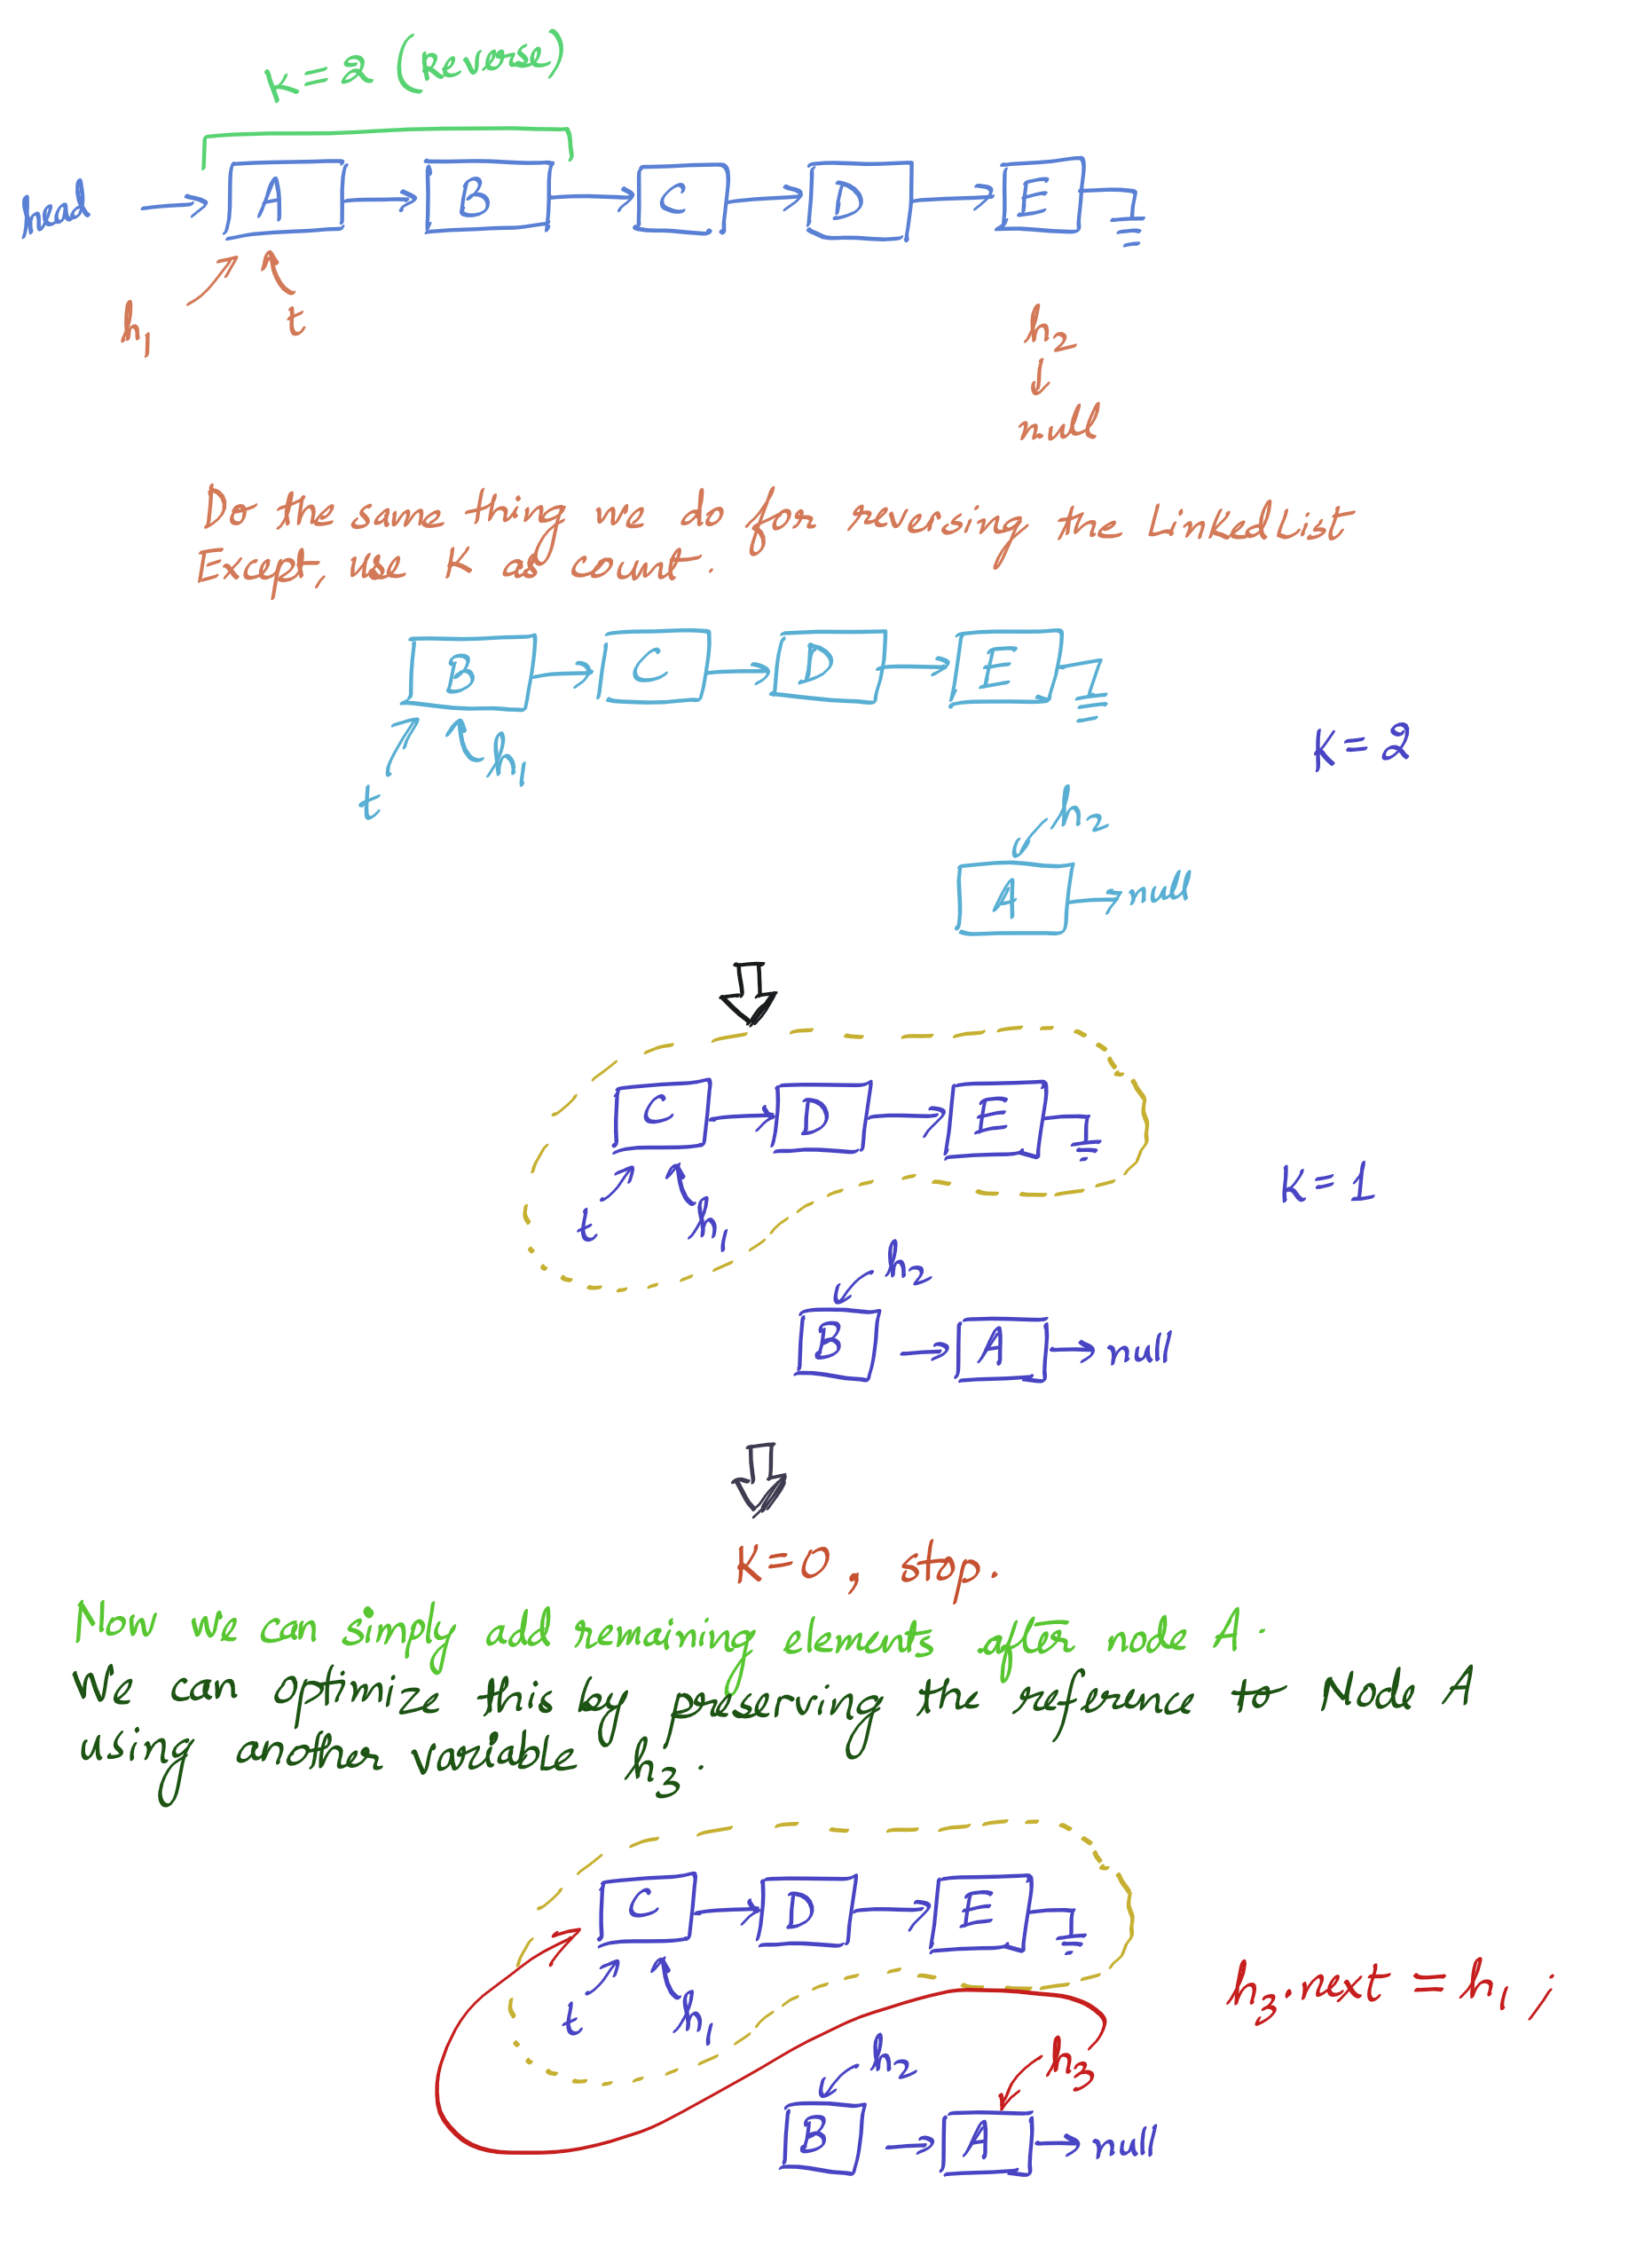 K=2 (Reverse)
head A B C D E
h1 t
h2
null
Do the same thing we do for reversing the LinkedList
Except, use K as count.
B C D E
K=2
t h1
h2
A null
C D E
K=1
t h1
h2
B A null
K=0, stop.
Now we can simply add remaining elements after node A.
We can optimize this by preserving the reference to Node A
using another variable h3.
C D E
h3.next = h1 ;
t h1
h2 h3
B A null